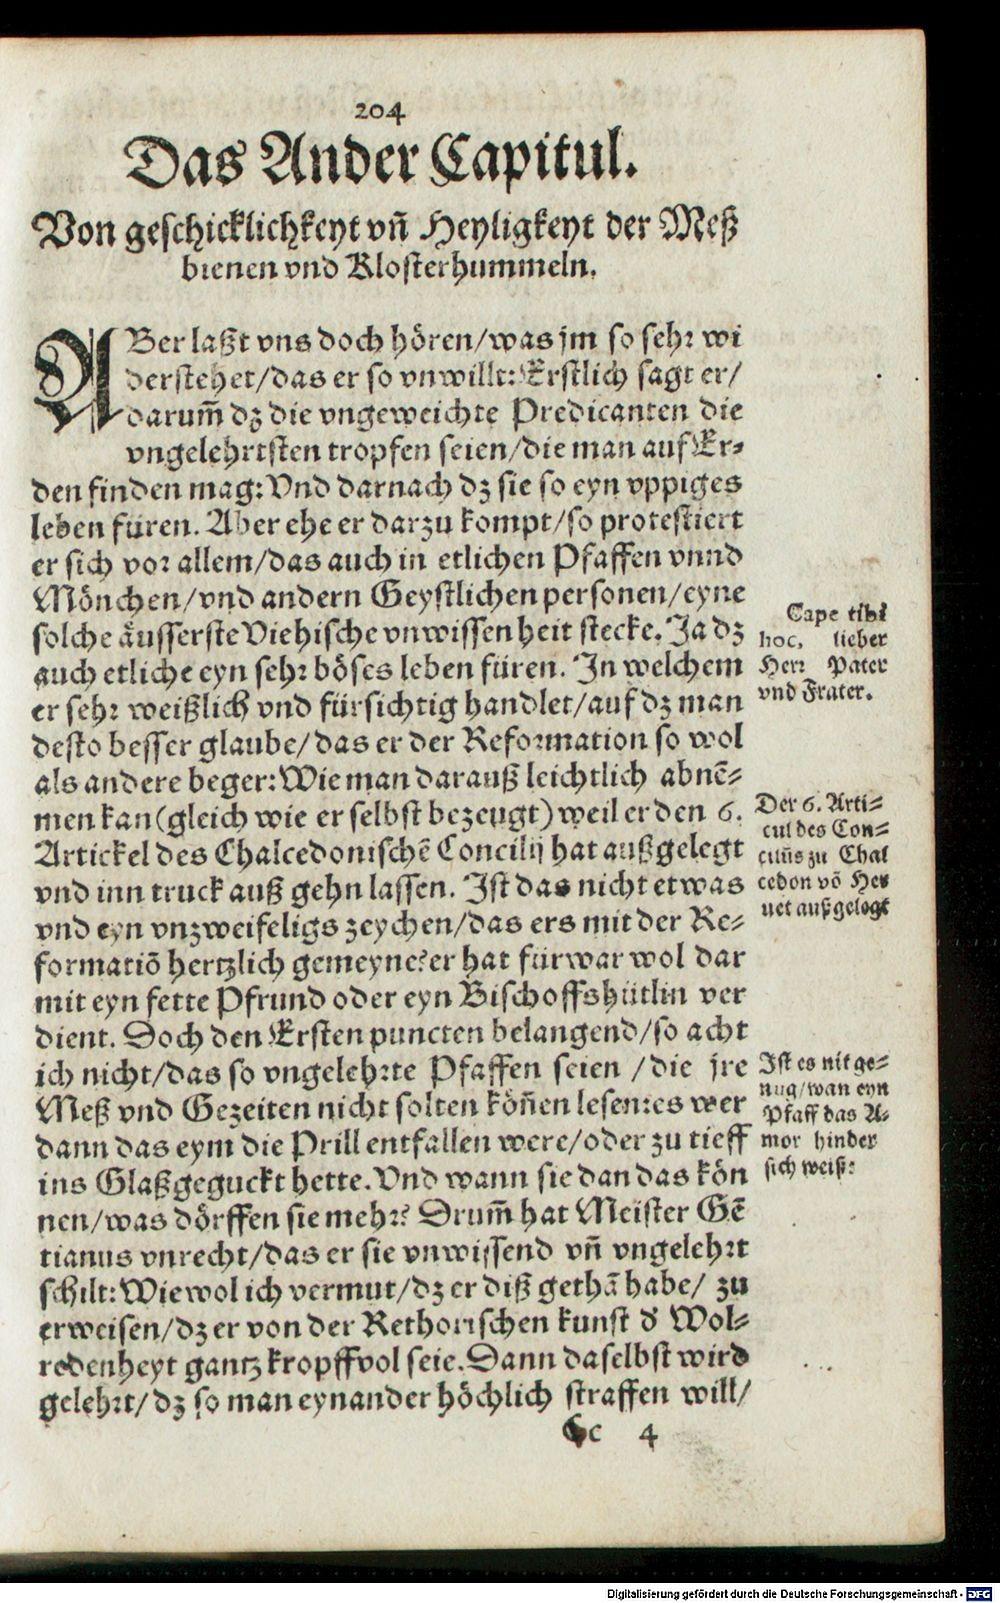 204
Das Ander Capitul.
Von geschicklichkeyt vñ Heyligkeyt der Meß
bienen vnd Klosterhummeln.
ABer laßt vns doch hören/was jm so sehr wi
derstehet/das er so vnwillt: Erstlich sagt er/
darum̃ dz die vngeweichte Predicanten die
vngelehrtsten tropfen seien/die man auf Er-
den finden mag: Vnd darnach dz sie so eyn vppiges
leben füren. Aber ehe er darzu kompt/so protestiert
er sich vor allem/das auch in etlichen Pfaffen vnnd
Mönchen/vnd andern Geystlichen personen/eyne
solche äusserste Viehische vnwissenheit stecke. Ja dz
auch etliche eyn sehr böses leben füren. In welchem
er sehr weißlich vnd fürsichtig handlet/auf dz man
desto besser glaube/das er der Reformation so wol
als andere beger: Wie man darauß leichtlich abnẽ-
men kan (gleich wie er selbst bezeugt) weil er den 6.
Artickel des Chalcedonischẽ Concilij hat außgelegt
vnd inn truck auß gehn lassen. Ist das nicht etwas
vnd eyn vnzweifeligs zeychen/das ers mit der Re-
formatiõ hertzlich gemeyne? er hat fürwar wol dar
mit eyn fette Pfrund oder eyn Bischoffshütlin ver
dient. Doch den Ersten puncten belangend/so acht
ich nicht/das so vngelehrte Pfaffen seien /die jre
Meß vnd Gezeiten nicht solten köñen lesen: es wer
dann das eym die Prill entfallen were/oder zu tieff
ins Glaß geguckt hette. Vnd wann sie dan das kön
nen/was dörffen sie mehr? Drum̃ hat Meister Gẽ
tianus vnrecht/das er sie vnwissend vñ vngelehrt
schilt: Wiewol ich vermut/dz er diß gethã habe/ zu
erweisen/dz er von der Rethorischen kunst d' Wol-
redenheyt gantz kropffvol seie. Dann daselbst wird
gelehrt/dz so man eynander höchlich straffen will/
Cc 4
Cape tibi
hoc, lieber
Herr Pater
vnd Frater.
Der 6. Arti-
cul des Con-
cilliũs zu Chal
cedon võ Her
uet außgelegt
Ist es nit ge-
nug/wan eyn
Pfaff das A-
mor hinder
sich weiß?
Digitalisierung gefördert durch die Deutsche Forschungsgemeinschaft - DFG